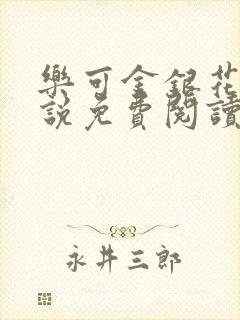 樂可金銀花
說免費閱讀
永井三郎